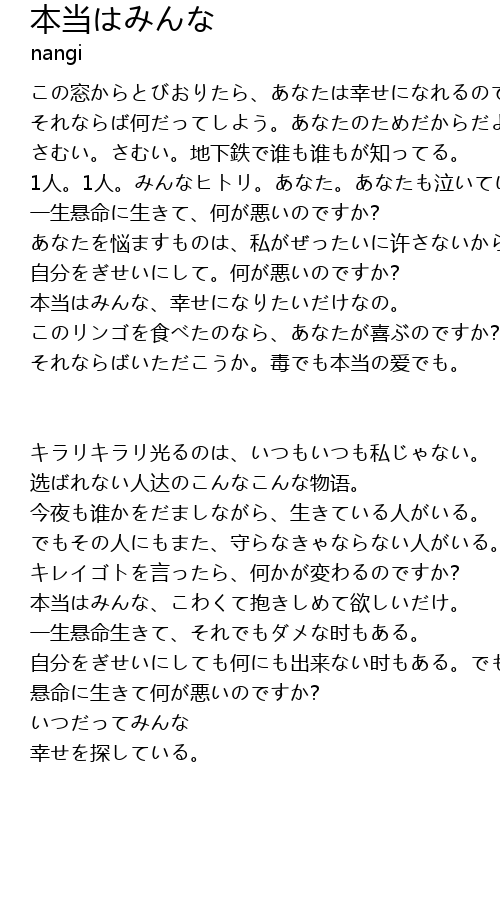 本当はみんな
nangi
この窓からとびおりたら、あなたは幸せになれるので
それならば何だってしよう。あなたのためだからだよ
さむい。さむい。地下鉄で谁も谁もが知ってる。
1人。1人。みんなヒトリ。あなた。あなたも泣いてい
一生悬命に生きて、何が悪いのですか?
あなたを悩ますものは、私がぜったいに许さないから
自分をぎせいにして。何が悪いのですか?
本当はみんな、幸せになりたいだけなの。
このリンゴを食べたのなら、あなたが喜ぶのですか?
それならばいただこうか。毒でも本当の爱でも。
キラリキラリ光るのは、いつもいつも私じゃない。
选ばれない人达のこんなこんな物语。
今夜も谁かをだましながら、生きている人がいる。
でもその人にもまた、守らなきゃならない人がいる。
キレイゴトを言ったら、何かが変わるのですか?
本当はみんな、こわくて抱きしめて欲しいだけ。
一生悬命生きて、それでもダメな时もある。
自分をぎせいにしても何にも出来ない时もある。でも
悬命に生きて何が悪いのですか?
いつだってみんな
幸せを探している。